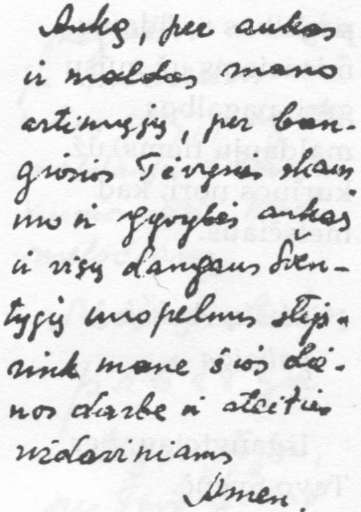 Auką, per aukas
ir maldas mano
artimųjų, per bran-
giosios Tėvynės skaus
mo ir gyvybės aukas
ir visų dangaus Šven-
tųjų nuopelnus stip-
rink mane šios die-
nos darbe ir ateities
uždaviniams
Amen.